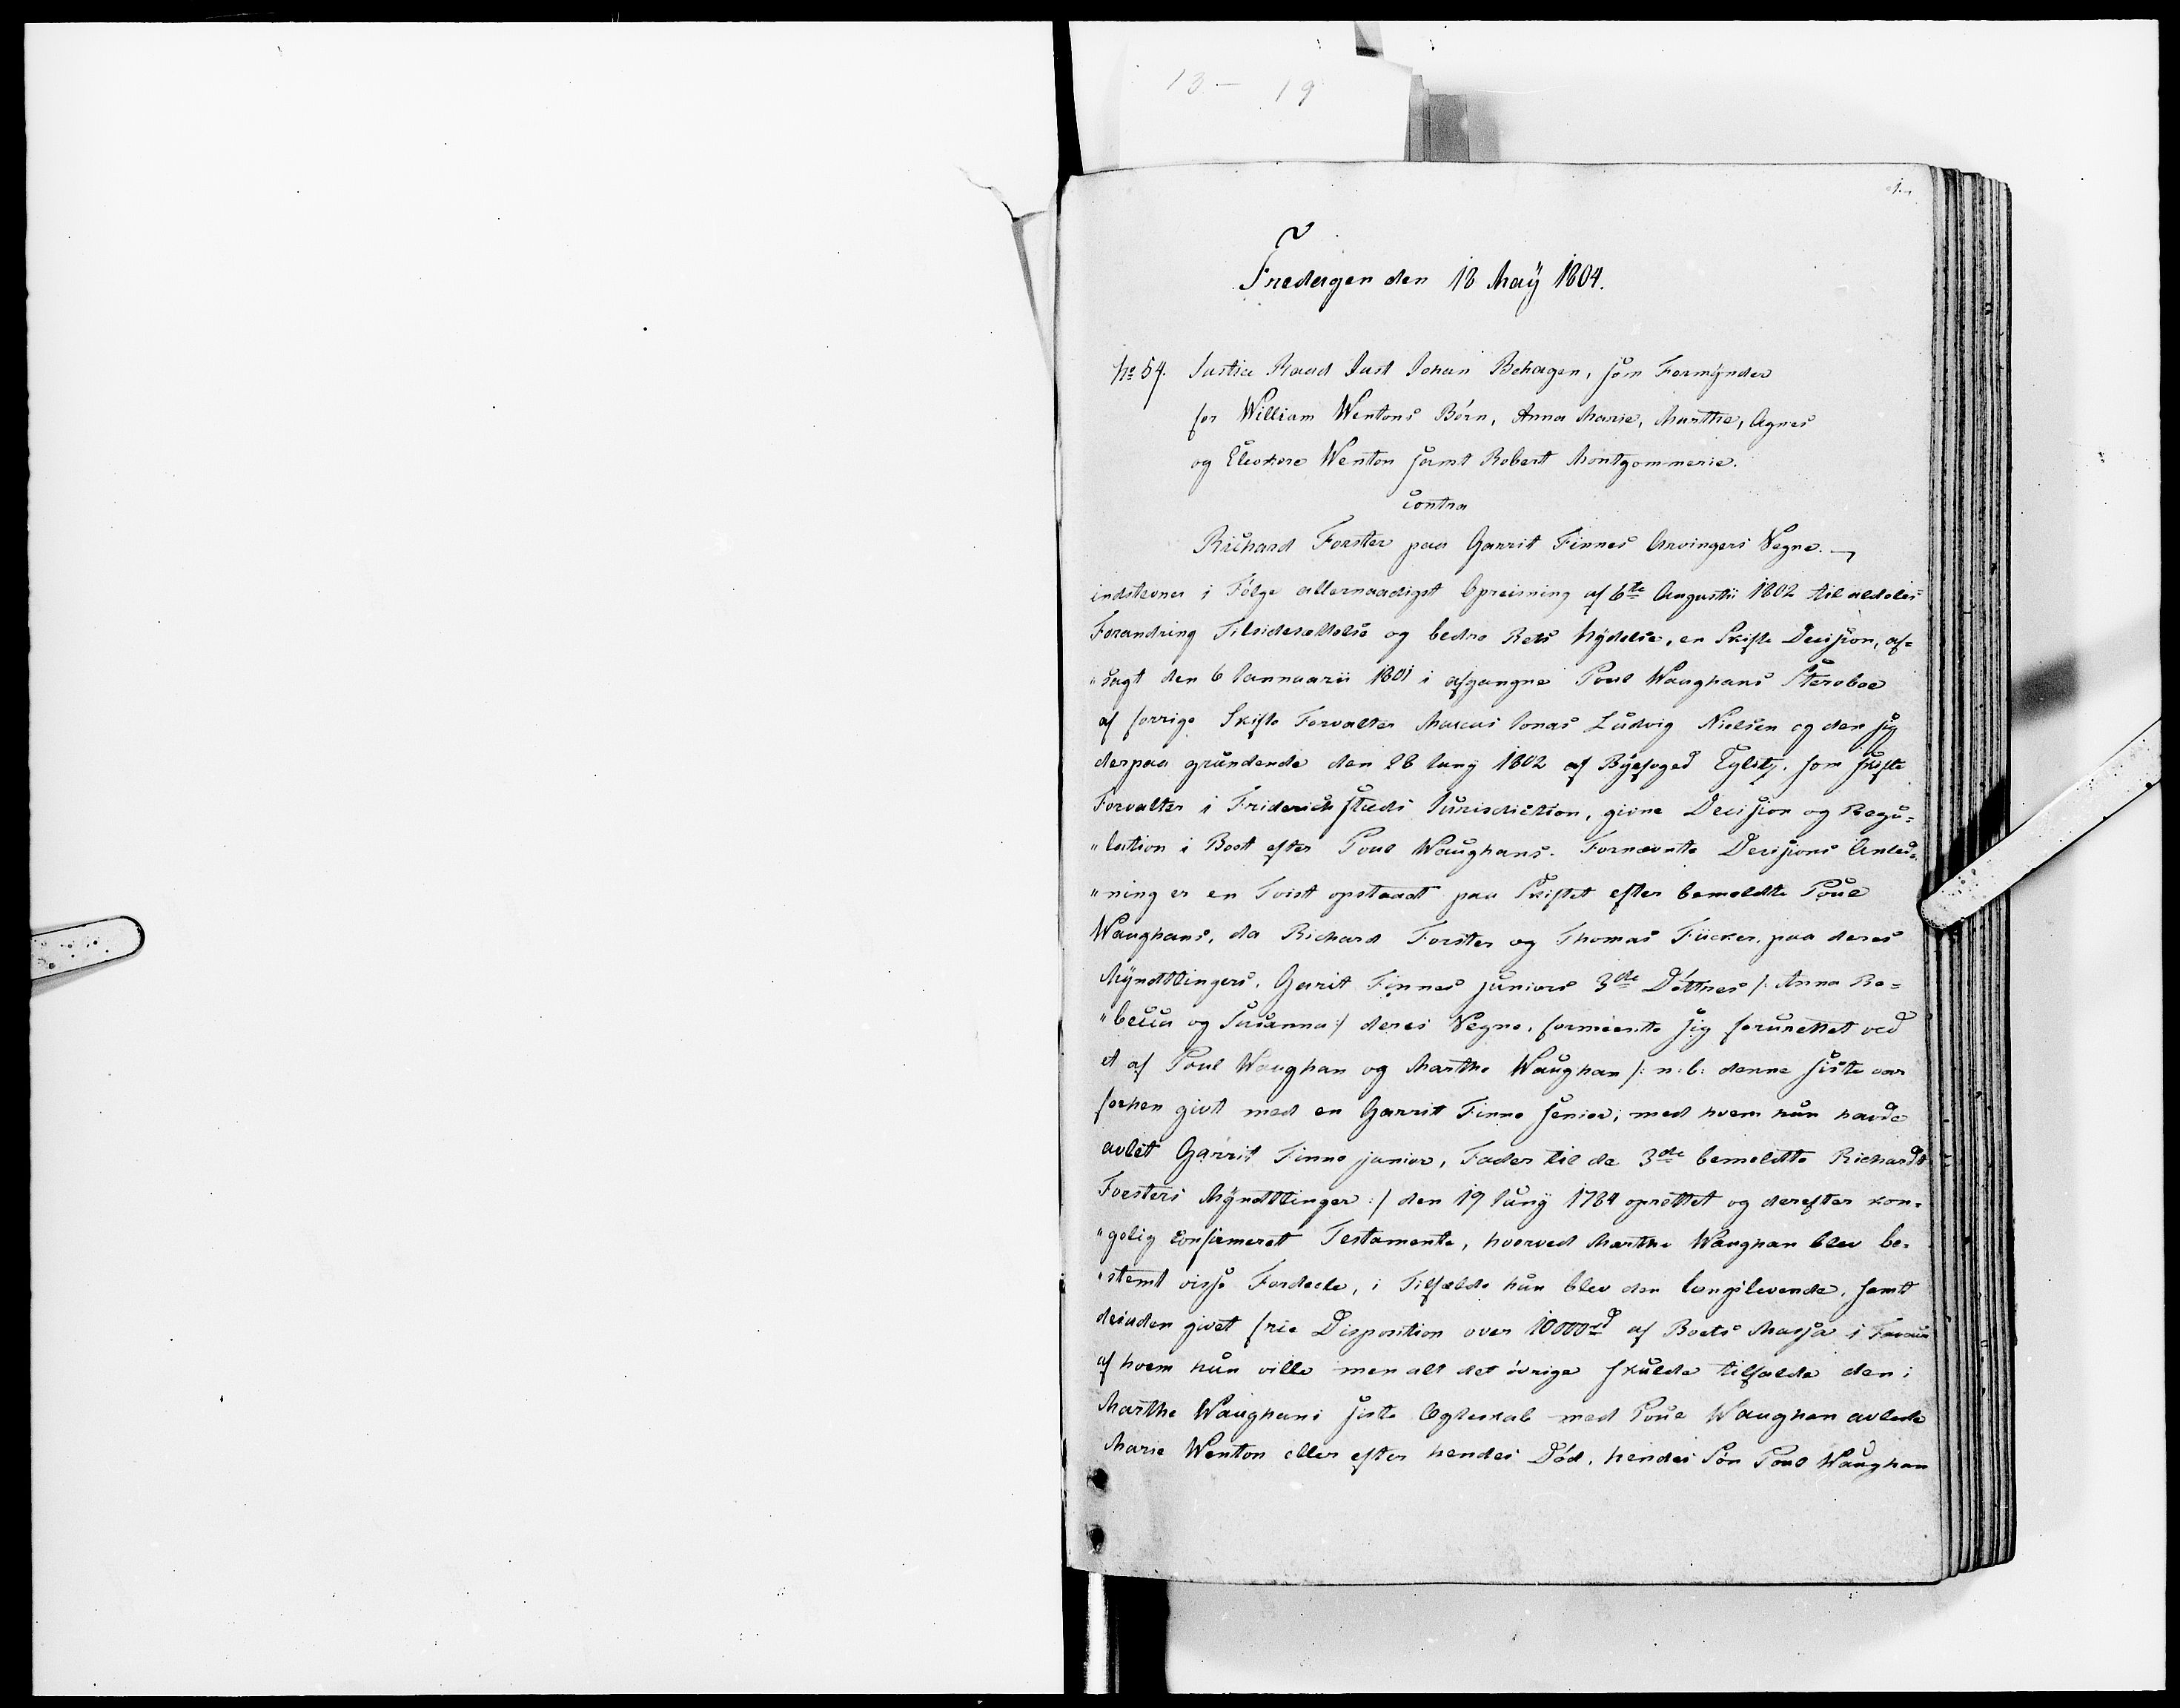 13 - 19
1.
Fredagen den 18 Maÿ 1804.
No 54. Justice Raad Just Johan Behagen, som Formÿnder
for William Wentons Börn, Anna Marie, Marthe, Agnes
og Eleonore Wenton samt Robert Montgommerie.
contra
Richard Forster paa Garrit Finnes Arvingers Vegne.
indstevner i Fölge allernaadigst Opreisning af 6te Augustii 1802 til aldeles
Forandring Tilsidesættelse og bedre Rets Nÿdelse, en Skifte Decision, af=
"sagt den 6 Jannuarii 1801 i afgangne Poul Waughans Sterboe
af forrige Skifte Forvalter Marcus Jonas Ludvig Nielsen og den sig
derpaa grundende den 28 Junÿ 1802 af Bÿefoged Eylitz, som skifte
Forvalter i Friderichsteds Jurisdiction, givne Decision og Regu=
"lation i Boet efter Poul Waughans. Fornævnte Decisions Anled=
"ning er en Tvist opstaadt paa Skiftet efter bemeldte Poul
Waughans, da Richard Forster og Thomas Fücker, paa deres
Mÿndtlingers, Garit Finnes juniors 3de Döttres /: Anna Re=
"becca og Susanna :/ deres Vegne, formeente sig forurettet ved
et af Poul Waughan og Marthe Waughan /: n: b: denne siste var
forhen givt med en Garrit Finne senior, med hvem hun havde
avlet Garrit Finne junior, Fader til de 3de bemeldte Richardt
Forsters Mÿndtlinger :/ den 19 Junÿ 1784 oprettet og derefter kon=
"gelig confirmeret Testamente, hvorved Marthe Waughan blev be=
"stemt visse Fordeele, i Tilfælde hun blev den længstlevende, samt
desuden givet frie Disposition over 10000rd af Boets Massa i Faveur
af hvem hun ville men alt det övrige skulde tilfalde den i
Marthe Waughans siste Egteskab med Poul Waughan avlede
Marie Wenton eller efter hendes Död, hendes Sön Poul Waughan